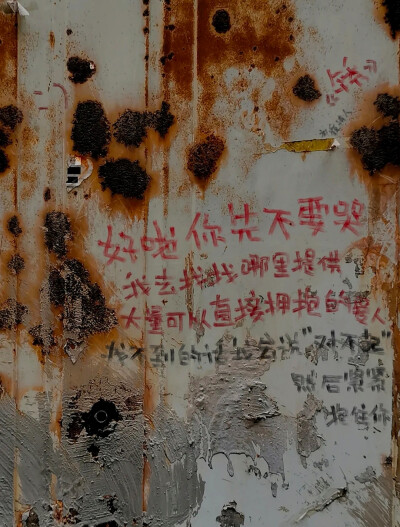 好啦 你先不要哭
我去找找哪里提供
大量可以直接拥抱的爱人
找不到的话我会说“对不起”
然后紧紧
抱住你